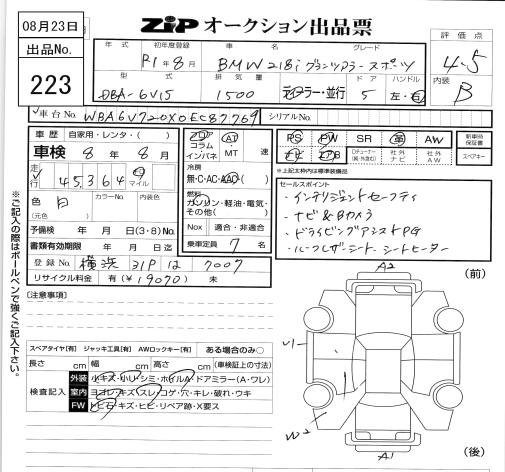 08月23日
ZIPオークション出品票
出品No.
223
年式 初年度登録 車名 グレード
R1年8月 BMW 218i グランツアラースポーツ
型式 排気量 ドア ハンドル
DBA-6V15 1500 ディーラー・並行 5 左・右
評価点
4.5
内装
B
車台No. WBA6V720X0EC87769 シリアルNo.
車歴 自家用・レンタ・( )
車検 8年8月
走行 45,364 マイル
色 白 カラーNo. 内装色
(元色)
予備検 年 月 日(3・8)No.
書類有効期限 年 月 日迄
登録No. 横浜 31P 12 7007
リサイクル料金 有(¥19070) 未
フロア AT
コラム
インパネ ・MT 速
冷房
無・C・AC・AAC
燃料
ガソリン・軽油・電気・
その他( )
Nox 適合・非適合
乗車定員 7名
PS PW SR 革 AW
社外ナビ 社外AW
新車時保証書
スペアキー
※上記太枠内は標準装備品
セールスポイント
・インテリジェントセーフティ
・ナビ&Bカメラ
・ドライビングアシストPG
・ルーフレザーシート シートヒーター
(注意事項)
スペアタイヤ[有] ジャッキ工具[有] AWロックキー[有] ある場合のみ○
長さ cm 幅 cm 高さ cm (車検証上の寸法)
検査記入
外装 小キズ・小U・シミ・ホイルA・ドアミラー(A・ワレ)
室内 ヨゴレ・キズ・スレ・コゲ・穴・キレ・破れ・ウキ
FW トビ石・キズ・ヒビ・リペア跡・X要ス
※ご記入の際はボールペンで強くご記入下さい。
A2
(前)
U1
W2
A1
(後)